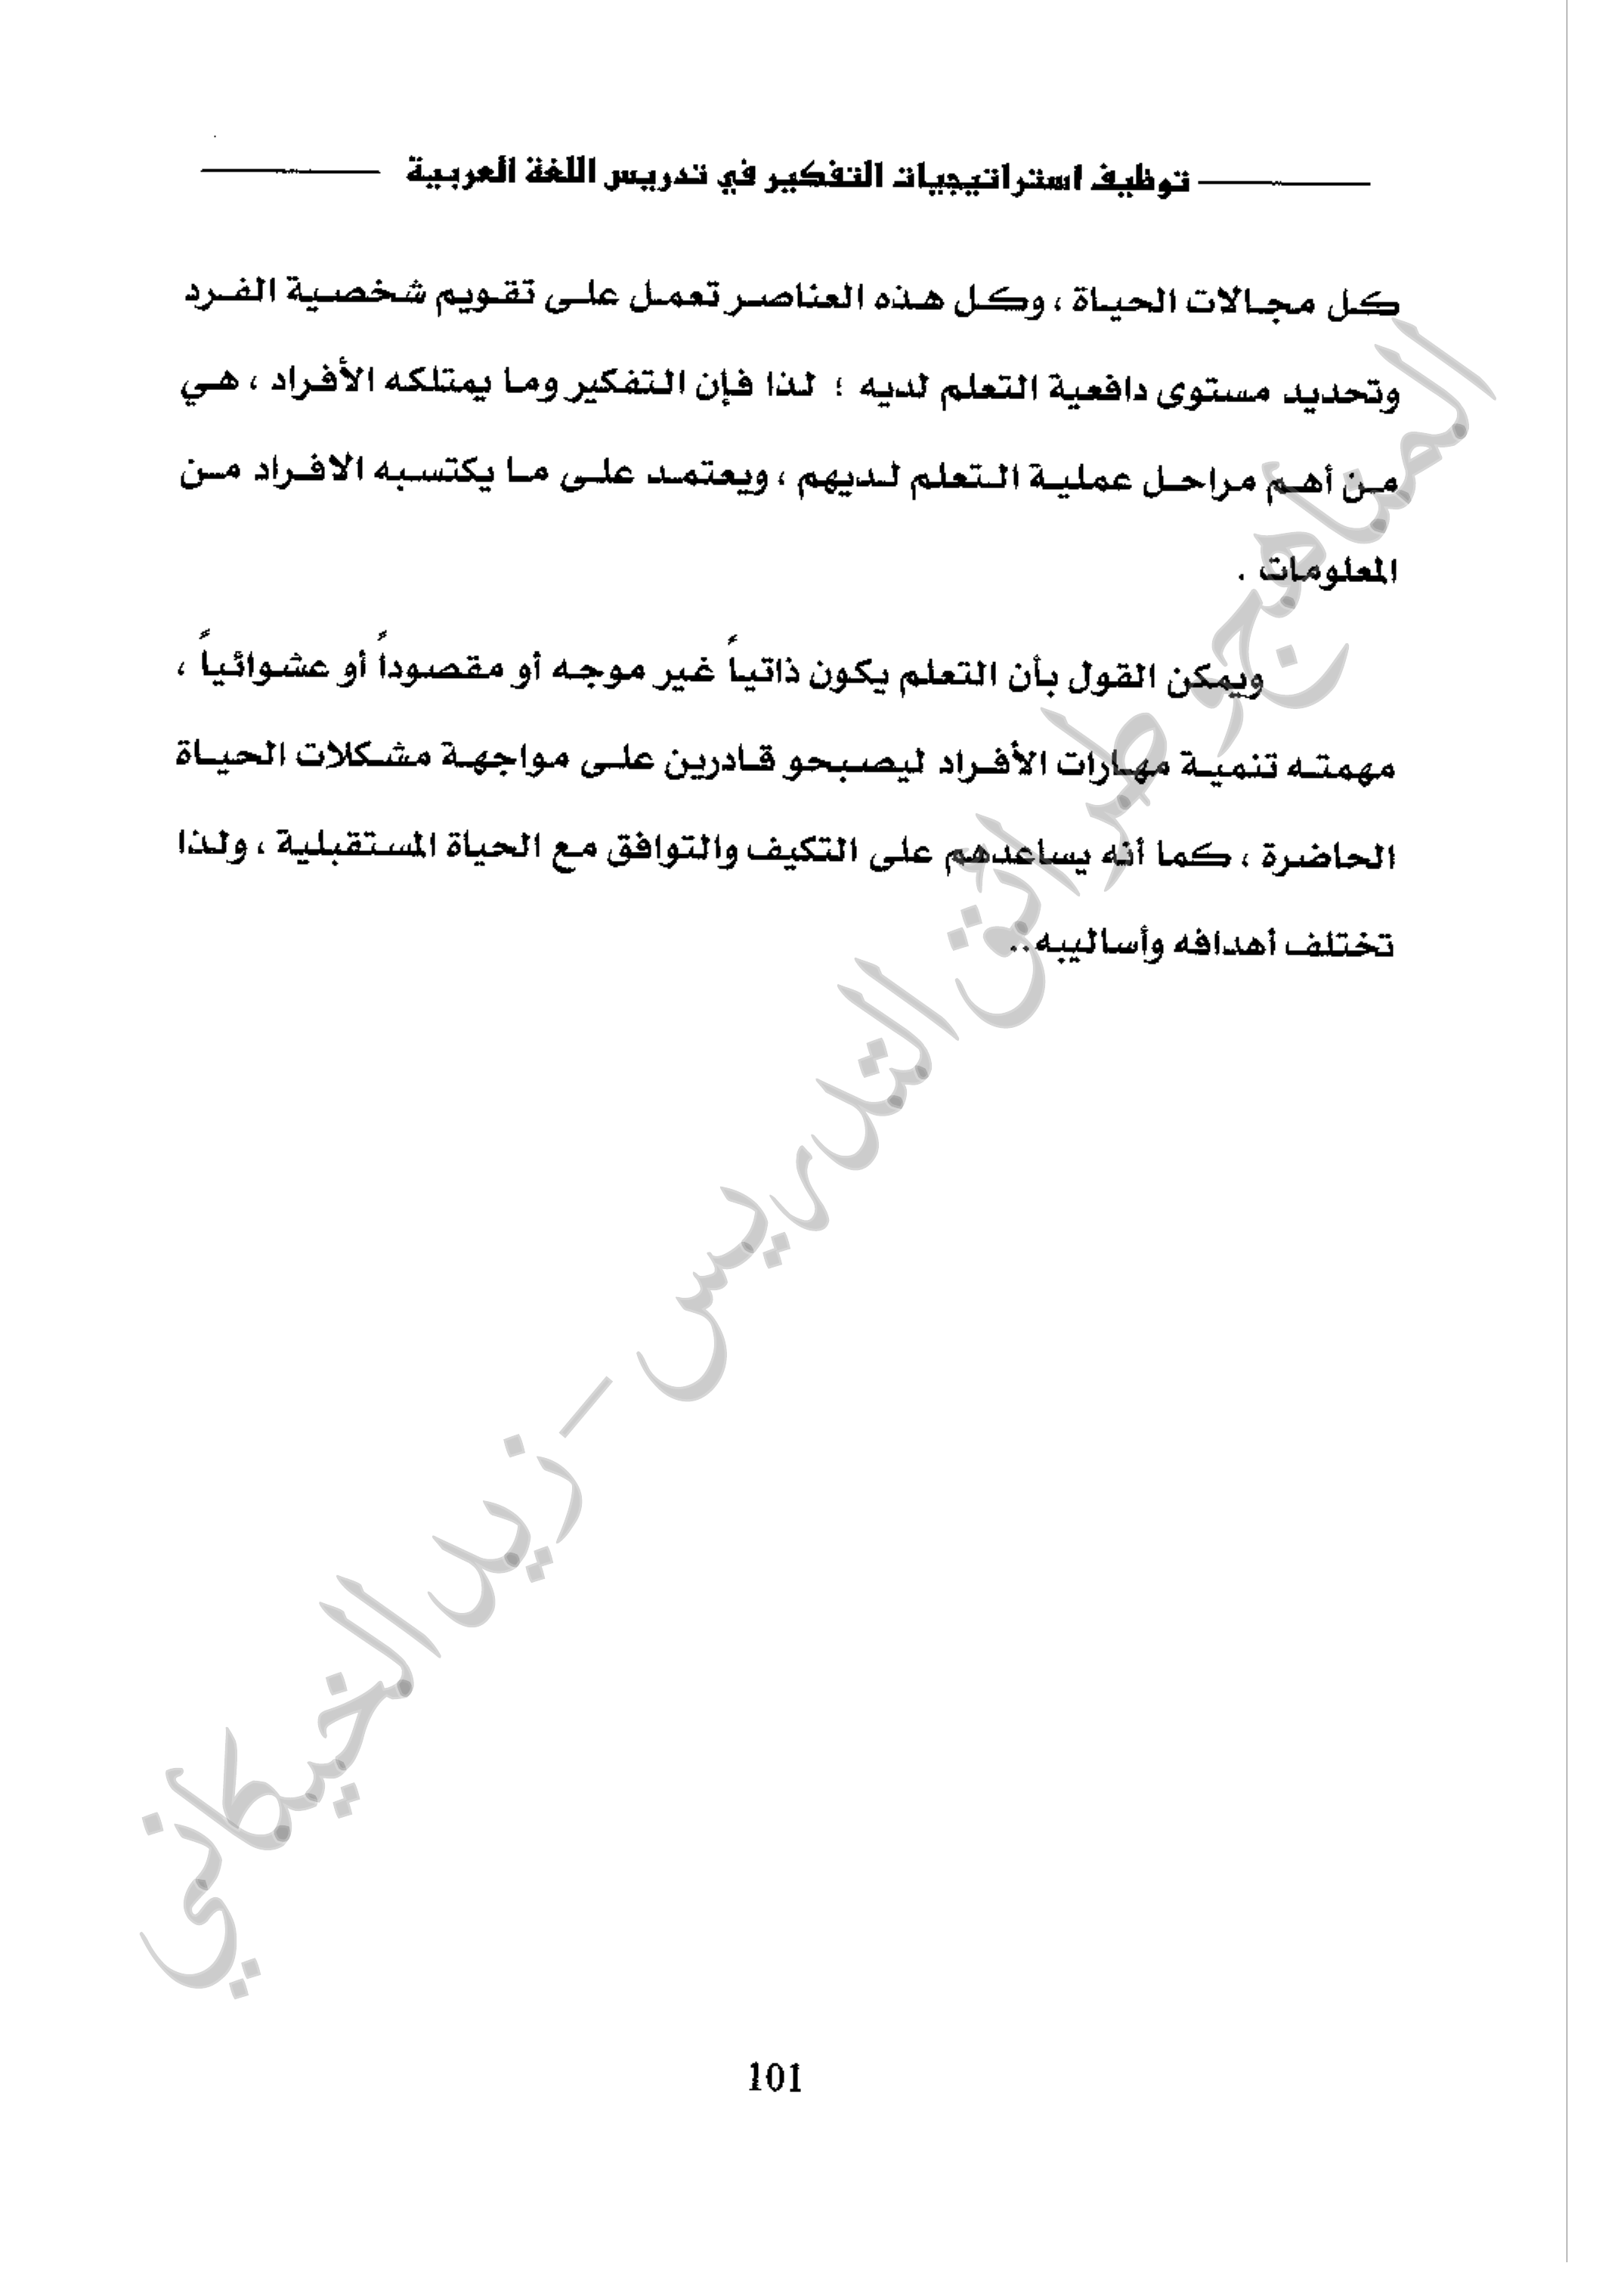 توظيف استراتيجيات التفكير في تدريس اللغة العربية
كل مجالات الحياة ، وكل هذه العناصر تعمل على تقويم شخصية الفرد
وتحديد مستوى دافعية التعلم لديه ؛ لذا فإن التفكير وما يمتلكه الأفراد ، هي
من أهم مراحل عملية التعلم لديهم ، ويعتمد على ما يكتسبه الافراد من
المعلومات .
ويمكن القول بأن التعلم يكون ذاتياً غير موجه أو مقصوداً أو عشوائياً ،
مهمته تنمية مهارات الأفراد ليصبحو قادرين على مواجهة مشكلات الحياة
الحاضرة ، كما أنه يساعدهم على التكيف والتوافق مع الحياة المستقبلية ، ولذا
تختلف أهدافه وأساليبه ..
المناهج وطرائق التدريس - زيد الخيكاني
101